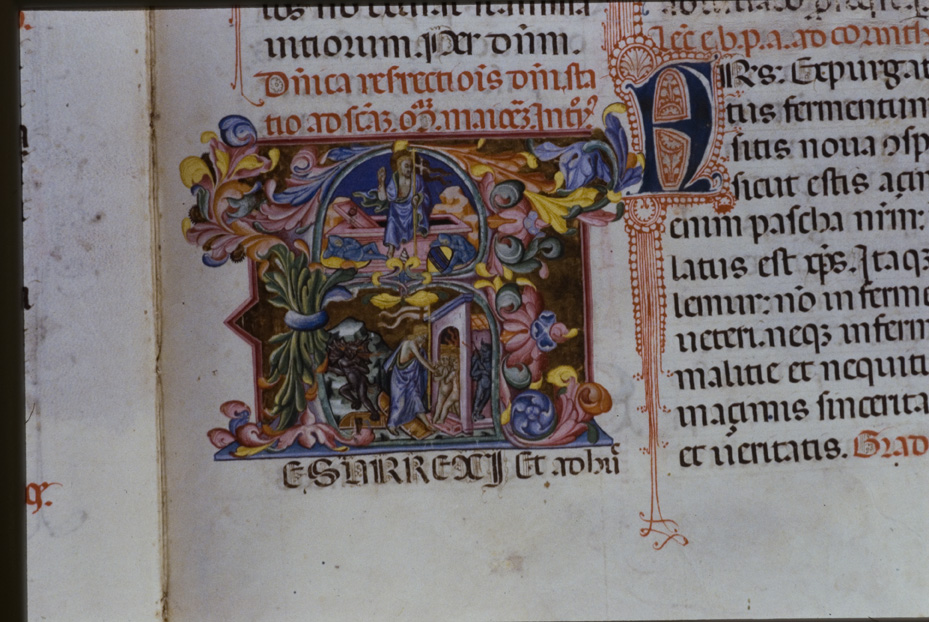 intiorum. Per dñm.
Dñica resrectiois dñi. sta
tio ad scãz
ESURREXI Et adhu
Lec̃. e. b. p. a. ad corinth
FRs: Expurgat
tus fermentum
sitis noua ↄsp
sicut estis açim
enim pascha nr̃m:
latus est xp̃s. Itaqꝫ
lemur: nõ in ferme
ueteri. neqꝫ in ferm
malitie et nequiti
maçimis sincerita
et ueritatis. Grad